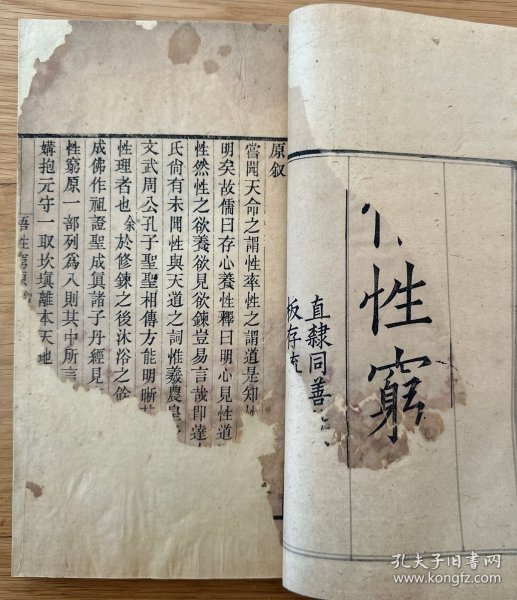 性窮
直隸同善
板存
原叙
嘗聞天命之謂性率性之謂道是知
明矣故儒曰存心養性釋曰明心見性道
性然性之欲養欲見欲鍊豈易言哉即達
氏尙有未聞性與天道之詞惟羲農皇
文武周公孔子聖聖相傳方能明晰
性理者也余於修鍊之後沐浴之餘
成佛作祖證聖成眞諸子丹經見
性窮原一部列爲八則其中所言
媾抱元守一取坎塡離本天地
悟性窮原
孔夫子旧書网
www.kongfz.com